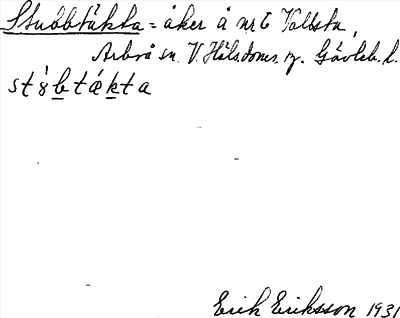 Stubbtäkta = åker å nr 6 Vallsta,
Arbrå sn. V. Häls. doms. Gävleb. l.
st8btäkta
Erik Eriksson 1931